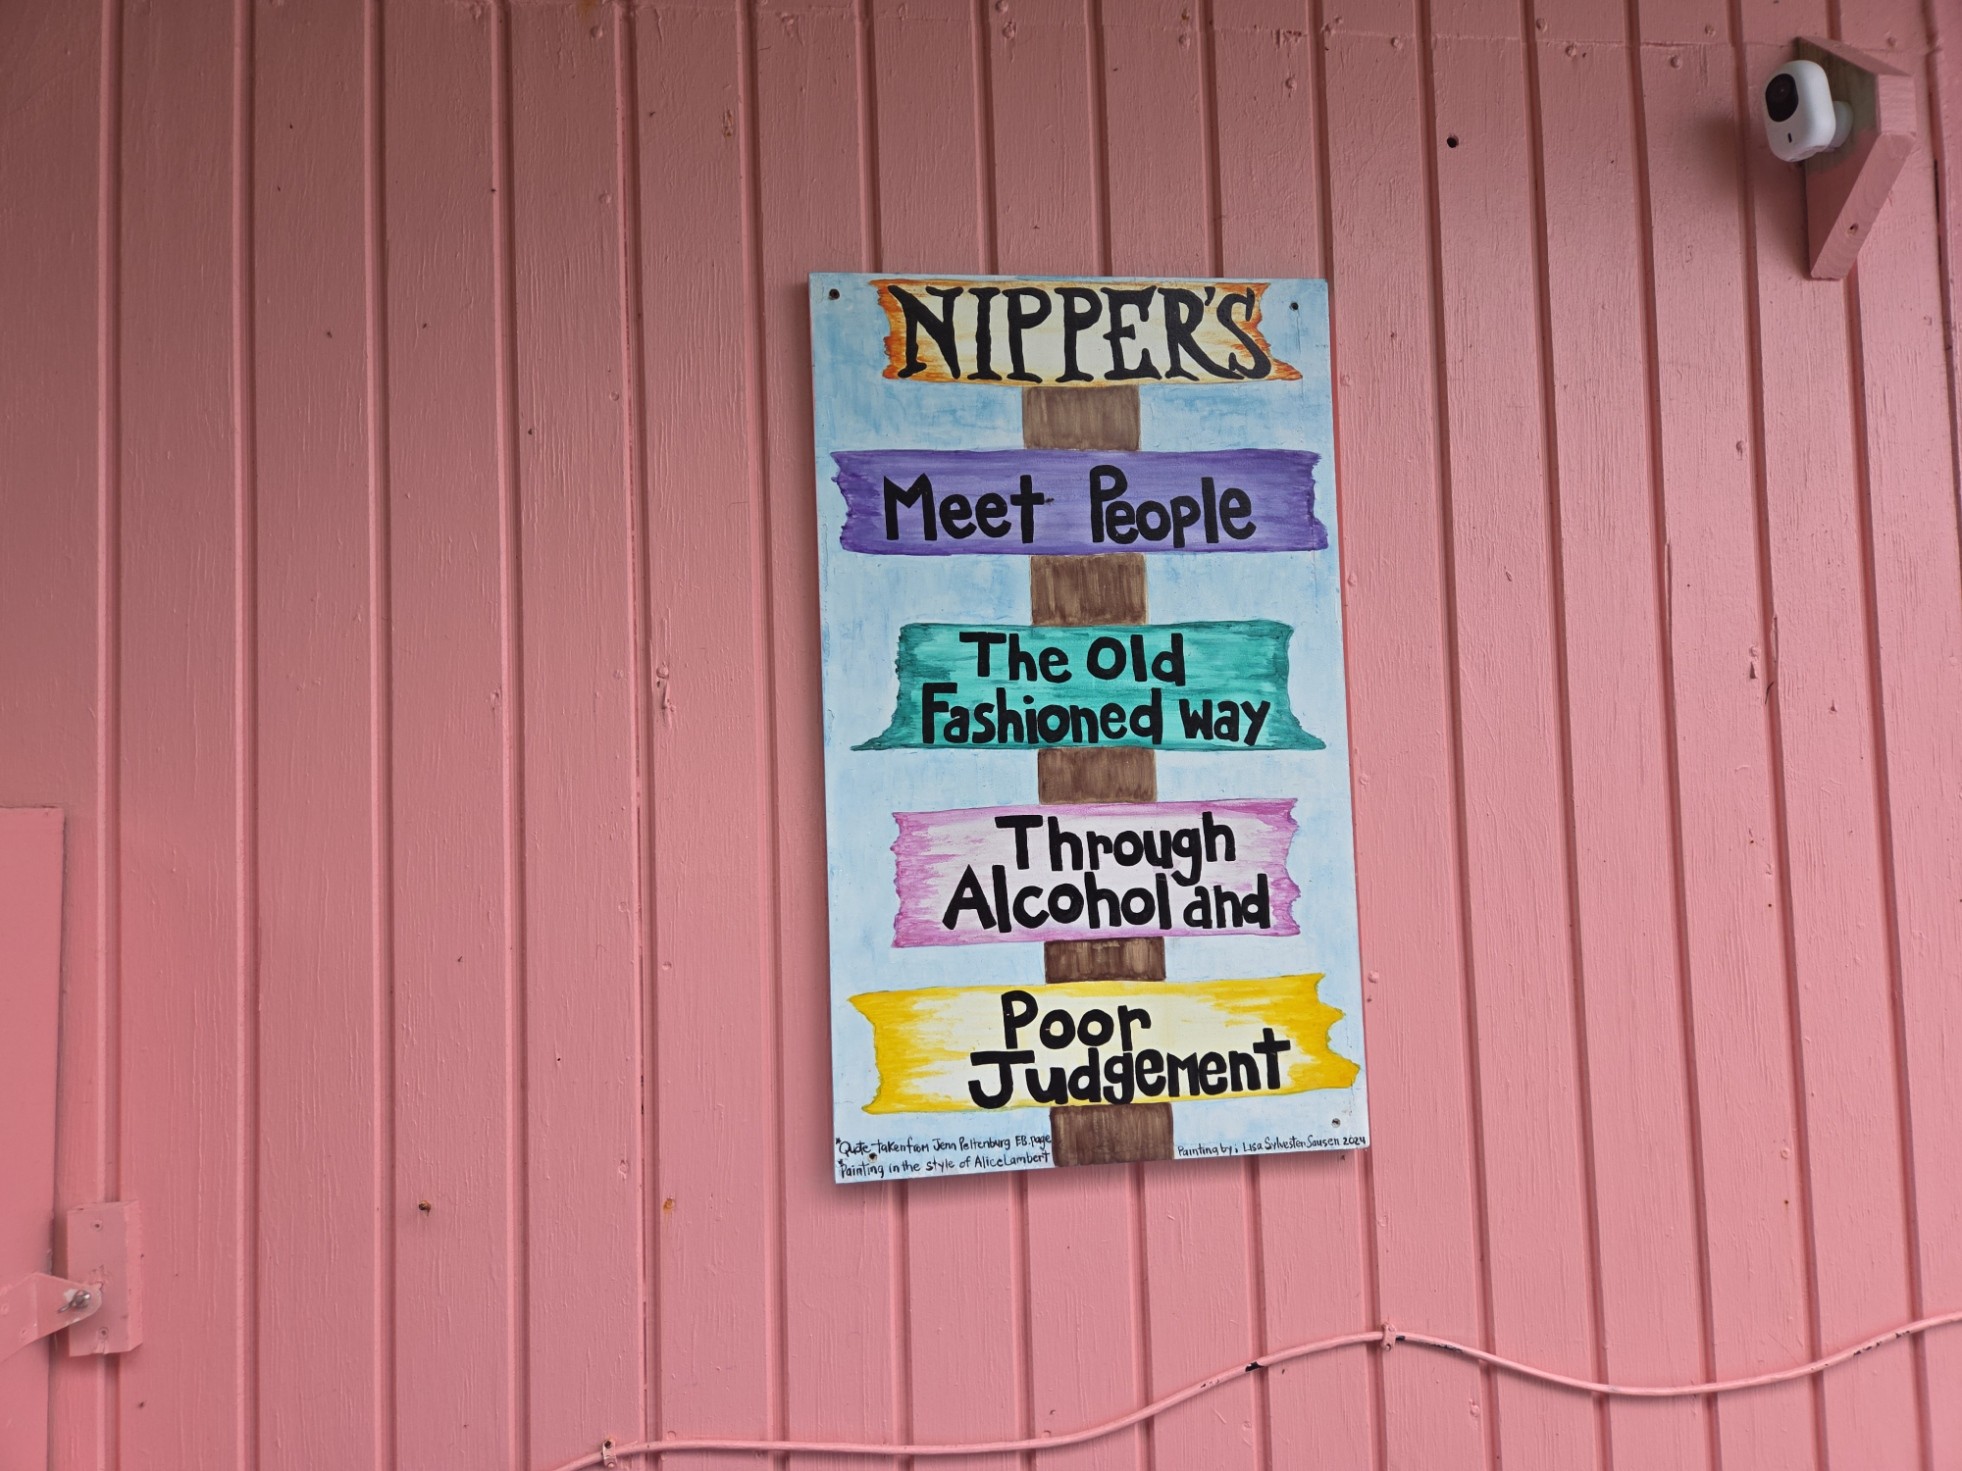 NIPPER'S
Meet People
The Old
Fashioned Way
Through
Alcohol and
Poor
Judgement
"Quote taken from Jenn Peltenburg F.B. page
Painting in the style of Alice Lambert
Painting by: Lisa Sylvester 2024